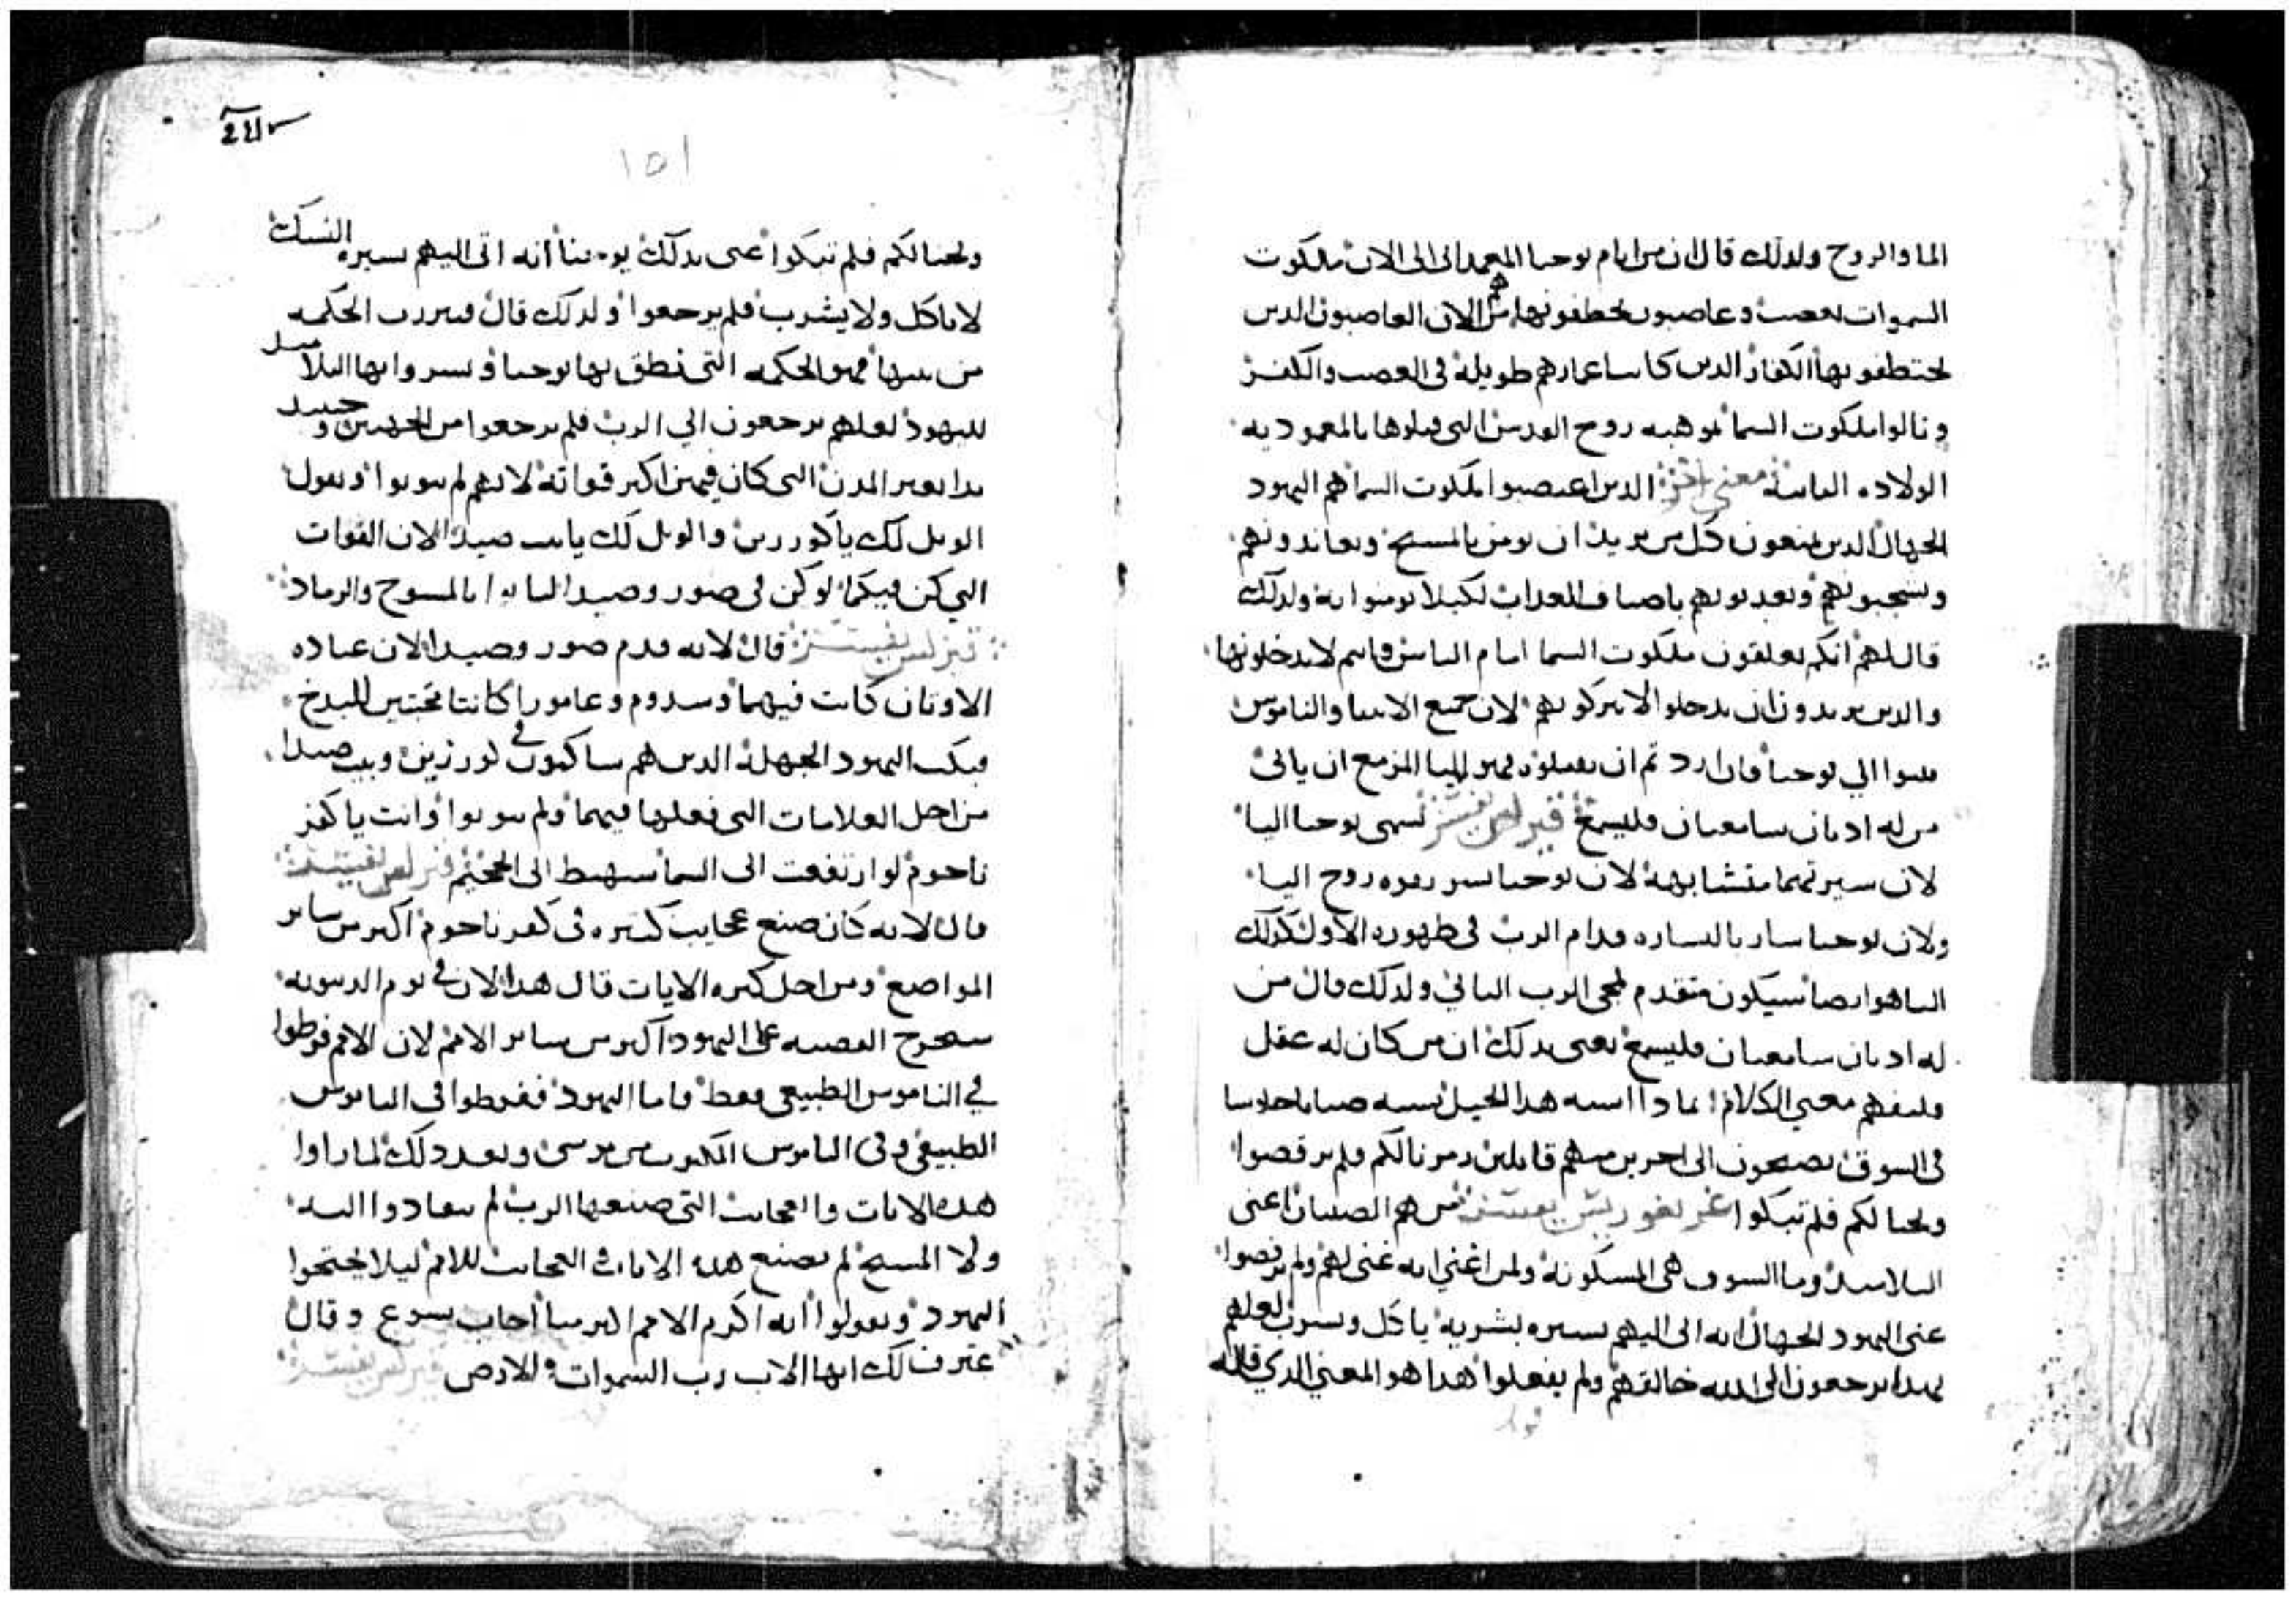 الما والروح ولدلك قال ان من ايام يوحنا المعمدانى الى الان ملكوت
السموات تغصب وغاصبون يخطفونها من الان الغاصبون الدين
يختطفونها الكفار الدين كانت اعمارهم طويلة فى الغصب والكفر
ونالوا ملكوت السما بموهبه روح القدس التى قبلوها بالمعموديه
الولاده الثانية معنى اخر الدين اغتصبوا ملكوت السما هم اليهود
الجهال الدين يمنعون كل من يريد ان يومن بالمسيح ويعاندونهم
ويسحبونهم ويعدبونهم باصناف العداب لكيلا يومنوا به ولدلك
قال لهم انكم تغلقون ملكوت السما امام الناس فانتم لا تدخلونها
والدين يريدون ان يدخلوا لا تتركونهم لان جميع الانبيا والناموس
تنبوا الي يوحنا فان اردتم ان تقبلوه فهو ايليا المزمع ان ياتى
من له ادنان سامعتان فليسمع تفسير يسمى يوحنا اليا
لان سيرتهما متشابهة لان يوحنا يسير بقوه روح اليا
ولان يوحنا سار بالبشاره قدام الرب فى ظهوره الاول كدلك
اليا هو ايضا سيكون متقدم لمجى الرب الثاني ولدلك قال من
له ادنان سامعتان فليسمع يعنى بدلك ان من كان له عقل
فليفهم معني الكلام بمادا اشبه هدا الجيل يشبه صبيانا جلوسا
فى السوق يصيحون الى اخرين منهم قايلين زمرنا لكم فلم ترقصوا
ونحنا لكم فلم تبكوا من هم الصبيان اعنى
التلاميد وما السوق هى المسكونة ولمن اغني انه غنى لهم ولم يرقصوا
عنى اليهود الجهال انه اتى اليهم بسيره بشرية ياكل ويشرب لعلهم
بهدا يرجعون الى الله خالقهم ولم يفعلوا هدا هو المعني الدي قاله
١٥١
ونحنا لكم فلم تبكوا اعنى بدلك يوحنا انه اتى اليهم بسيره النسك
لا ياكل ولا يشرب فلم يرجعوا ولدلك قال فتبررت الحكمه
من بنيها فهو الحكمه التى نطق بها يوحنا وبشروا بها التلاميد
لليهود لعلهم يرجعون الي الرب فلم يرجعوا من الجهتين وحينيد
بدا يعير المدن التى كان فيهن اكثر قواته لانهم لم يتوبوا ويقول
الويل لك يا كورزين والويل لك يا بيت صيدا لان القوات
التي كن فيكما لو كن فى صور وصيدا لتابوا بالمسوح والرماد
تفسير قال لانه قدم صور وصيدا لان عباده
الاوثان كانت فيهما وسدوم وعامورا كانتا تحت
فبكت اليهود الجهلة الدين هم ساكنون في كورزين وبيت صيدا
من اجل العلامات التى فعلها فيهما ولم يتوبوا وانت يا كفر
ناحوم لو ارتفعت الى السما ستهبط الى الجحيم تفسير
قال لانه كان صنع عجايب كثيره فى كفر ناحوم اكثر من ساير
المواضع ومن اجل كثره الايات قال هدا لان في يوم الدينونه
ستخرج القضيه على اليهود اكثر من ساير الامم لان الامم فرطوا
في الناموس الطبيعي فقط فاما اليهود ففرطوا فى الناموس
الطبيعى وفى الناموس المكتوب من موسى وبعد دلك لما راوا
هده الايات والعجايب التى صنعها الرب لم ينقادوا اليه
ولا المسيح لم يصنع هده الايات العجايب للامم ليلا يحتجوا
اليهود ويقولوا انه اكرم الامم اكثر منا اجاب يسوع وقال
اعترف لك ايها الاب رب السموات والارض تفسير